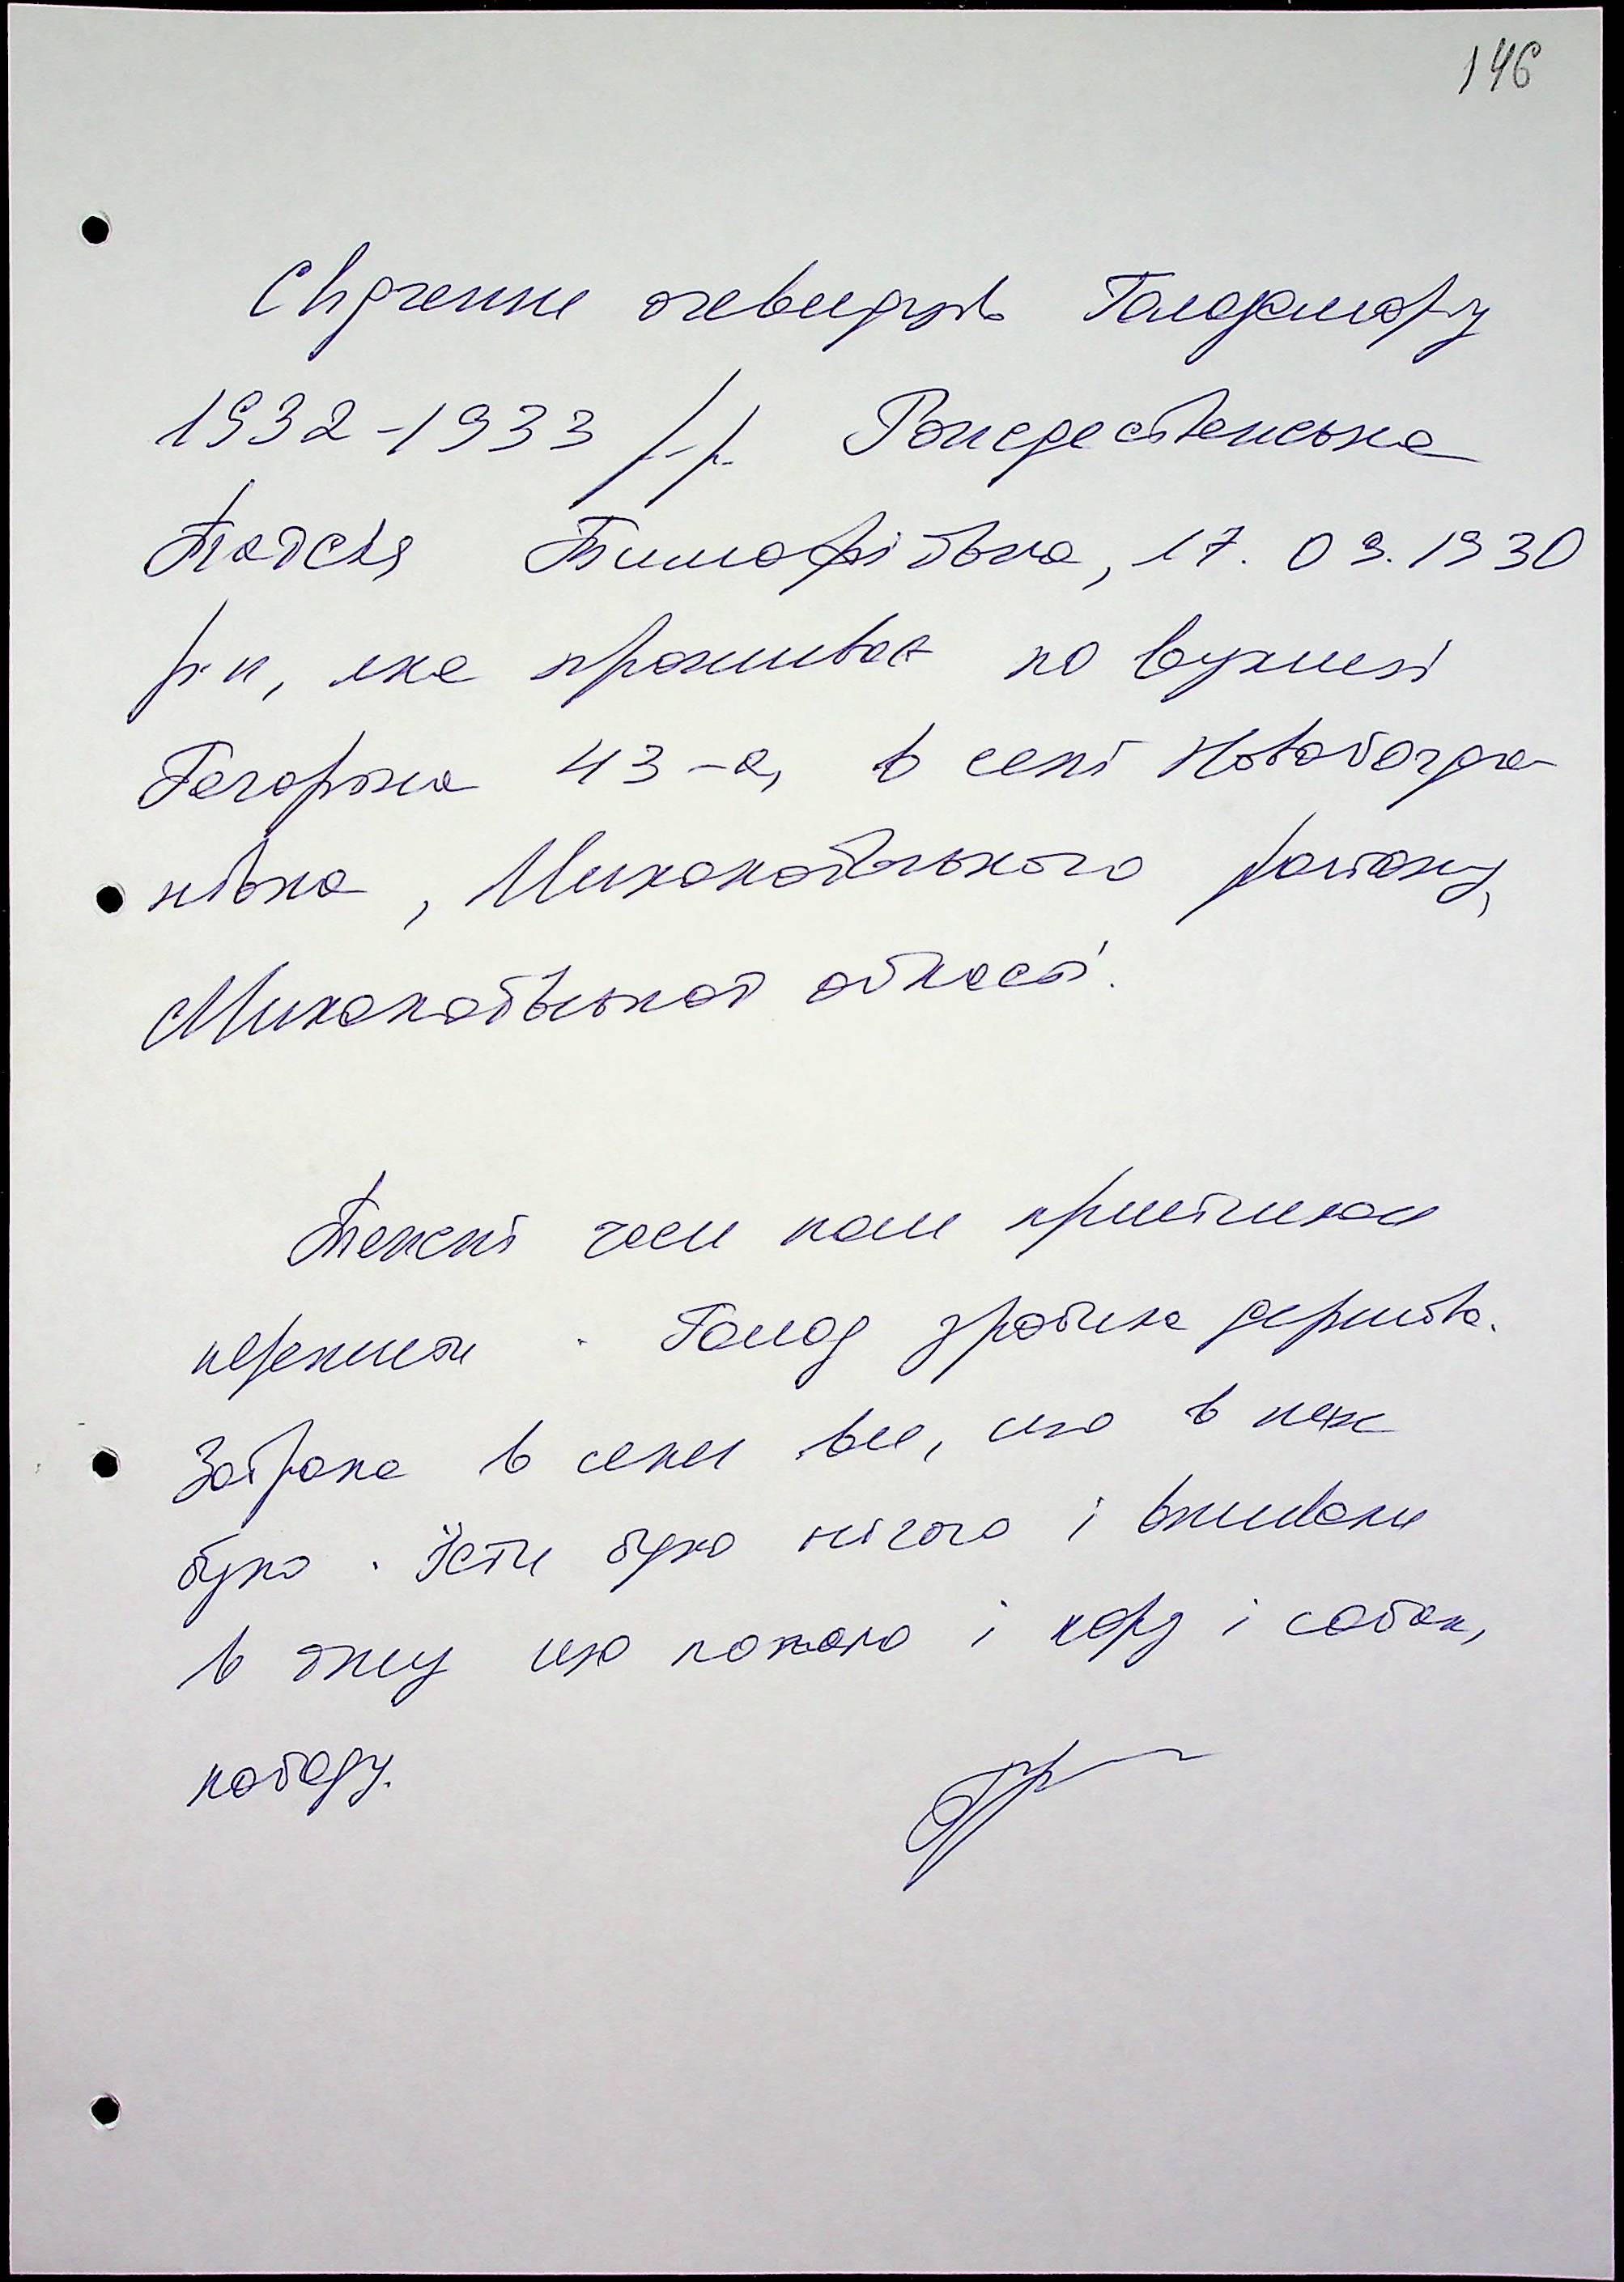 146
Свідчення очевидців Голодомору
1932-1933 р.р. Рождественська
Таїсія Тимофіївна, 17.09.1930
р.н, яка проживає по вулиці
Гагаріна 43-а, в селі Новобогда-
нівка, Миколаївського району,
Миколаївської області.
Тяжкі часи нам прийшлося
пережити. Голод зробила держава.
Забрала в семи все, що в нас
було. Їсти було нічого і вживали
в їжу що попало і кору і собак,
лободу.